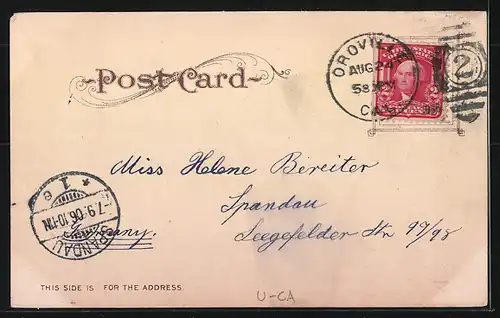 Post Card
OROVILLE
AUG 24
5 30 PM
CAL.
2
Miss Helene Bereiter
Spandau
Seegefelder Str 97/98
Germany.
SPANDAU
7.9.06.10-11N.
* 1 e
THIS SIDE IS FOR THE ADDRESS.
U-CA